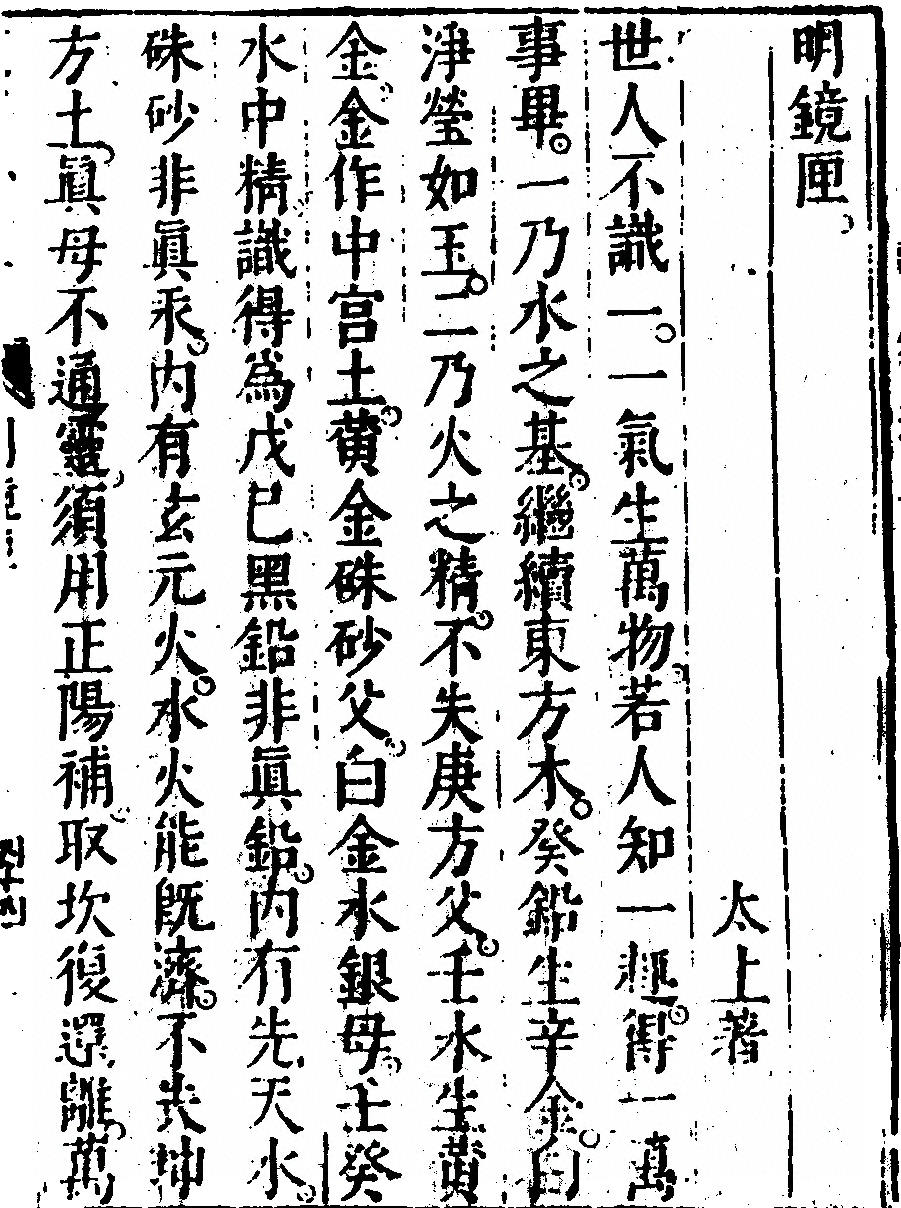 明鏡匣
太上著
世人不識一。一氣生萬物若人知一*得一萬
事畢。一乃水之基繼續東方木。癸鉛生辛金白
淨瑩如玉。二乃火之精不失庚方父壬水生黃
金金作中宮土黃金硃砂父白金水銀母壬癸
水中精識得為戊己黑鉛非眞鉛內有先天水
硃砂非眞汞內有玄元火。水火能既濟不失坤
方土眞母不通靈須用正陽補取坎復還離萬